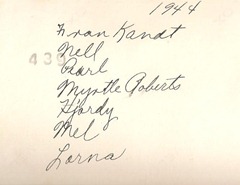 1944
Fran Kandt
Nell
439
Pearl
Myrtle Roberts
Hjordy
Mel
Lorna